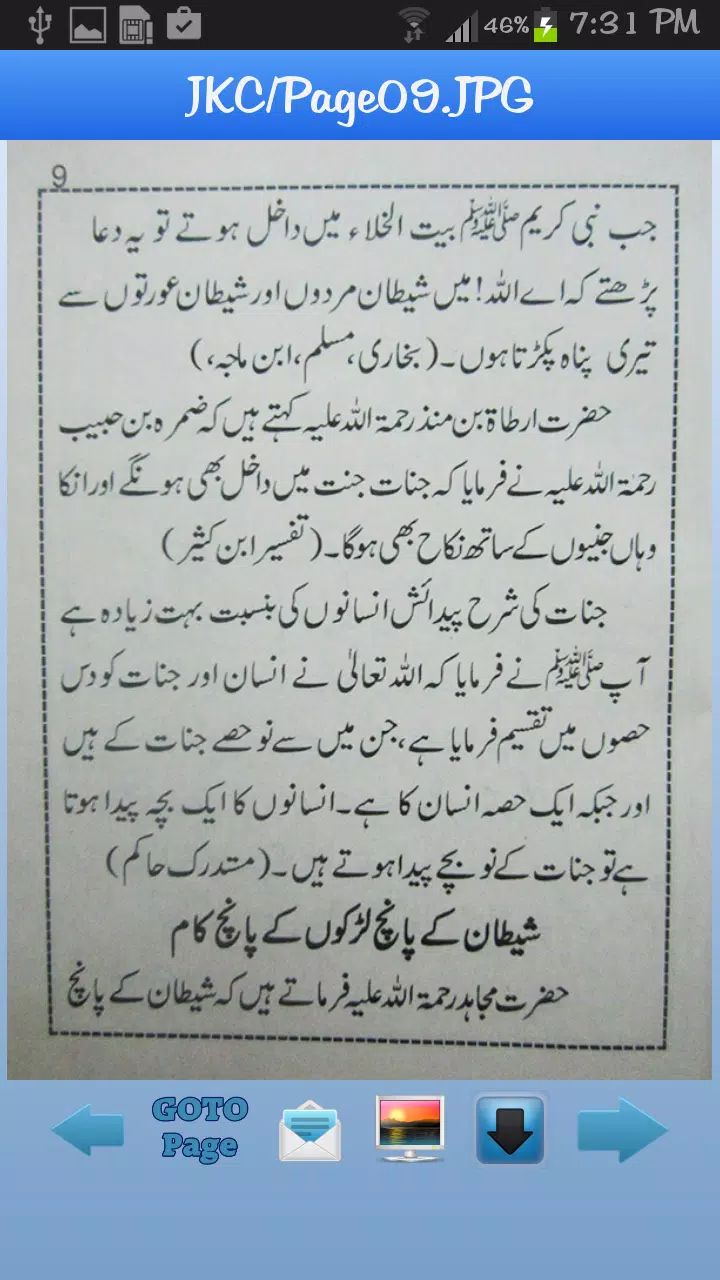 46% 7:31 PM
JKC/Page09.JPG
9
جب نبی کریم ﷺ بیت الخلاء میں داخل ہوتے تو یہ دعا
پڑھتے کہ اے اللہ! میں شیطان مردوں اور شیطان عورتوں سے
تیری پناہ پکڑتا ہوں۔ (بخاری، مسلم، ابن ماجہ،)
حضرت ارطاۃ بن منذر رحمۃ اللہ علیہ کہتے ہیں کہ ضمرہ بن حبیب
رحمۃ اللہ علیہ نے فرمایا کہ جنات جنت میں داخل بھی ہونگے اور انکا
وہاں جنیوں کے ساتھ نکاح بھی ہوگا۔ (تفسیر ابن کثیر)
جنات کی شرح پیدائش انسانوں کی بنسبت بہت زیادہ ہے
آپ ﷺ نے فرمایا کہ اللہ تعالیٰ نے انسان اور جنات کو دس
حصوں میں تقسیم فرمایا ہے، جن میں سے نو حصے جنات کے ہیں
اور جبکہ ایک حصہ انسان کا ہے۔ انسانوں کا ایک بچہ پیدا ہوتا
ہے تو جنات کے نو بچے پیدا ہوتے ہیں۔ (متدرک حاکم)
شیطان کے پانچ لڑکوں کے پانچ کام
حضرت مجاہد رحمۃ اللہ علیہ فرماتے ہیں کہ شیطان کے پانچ
GOTO
Page